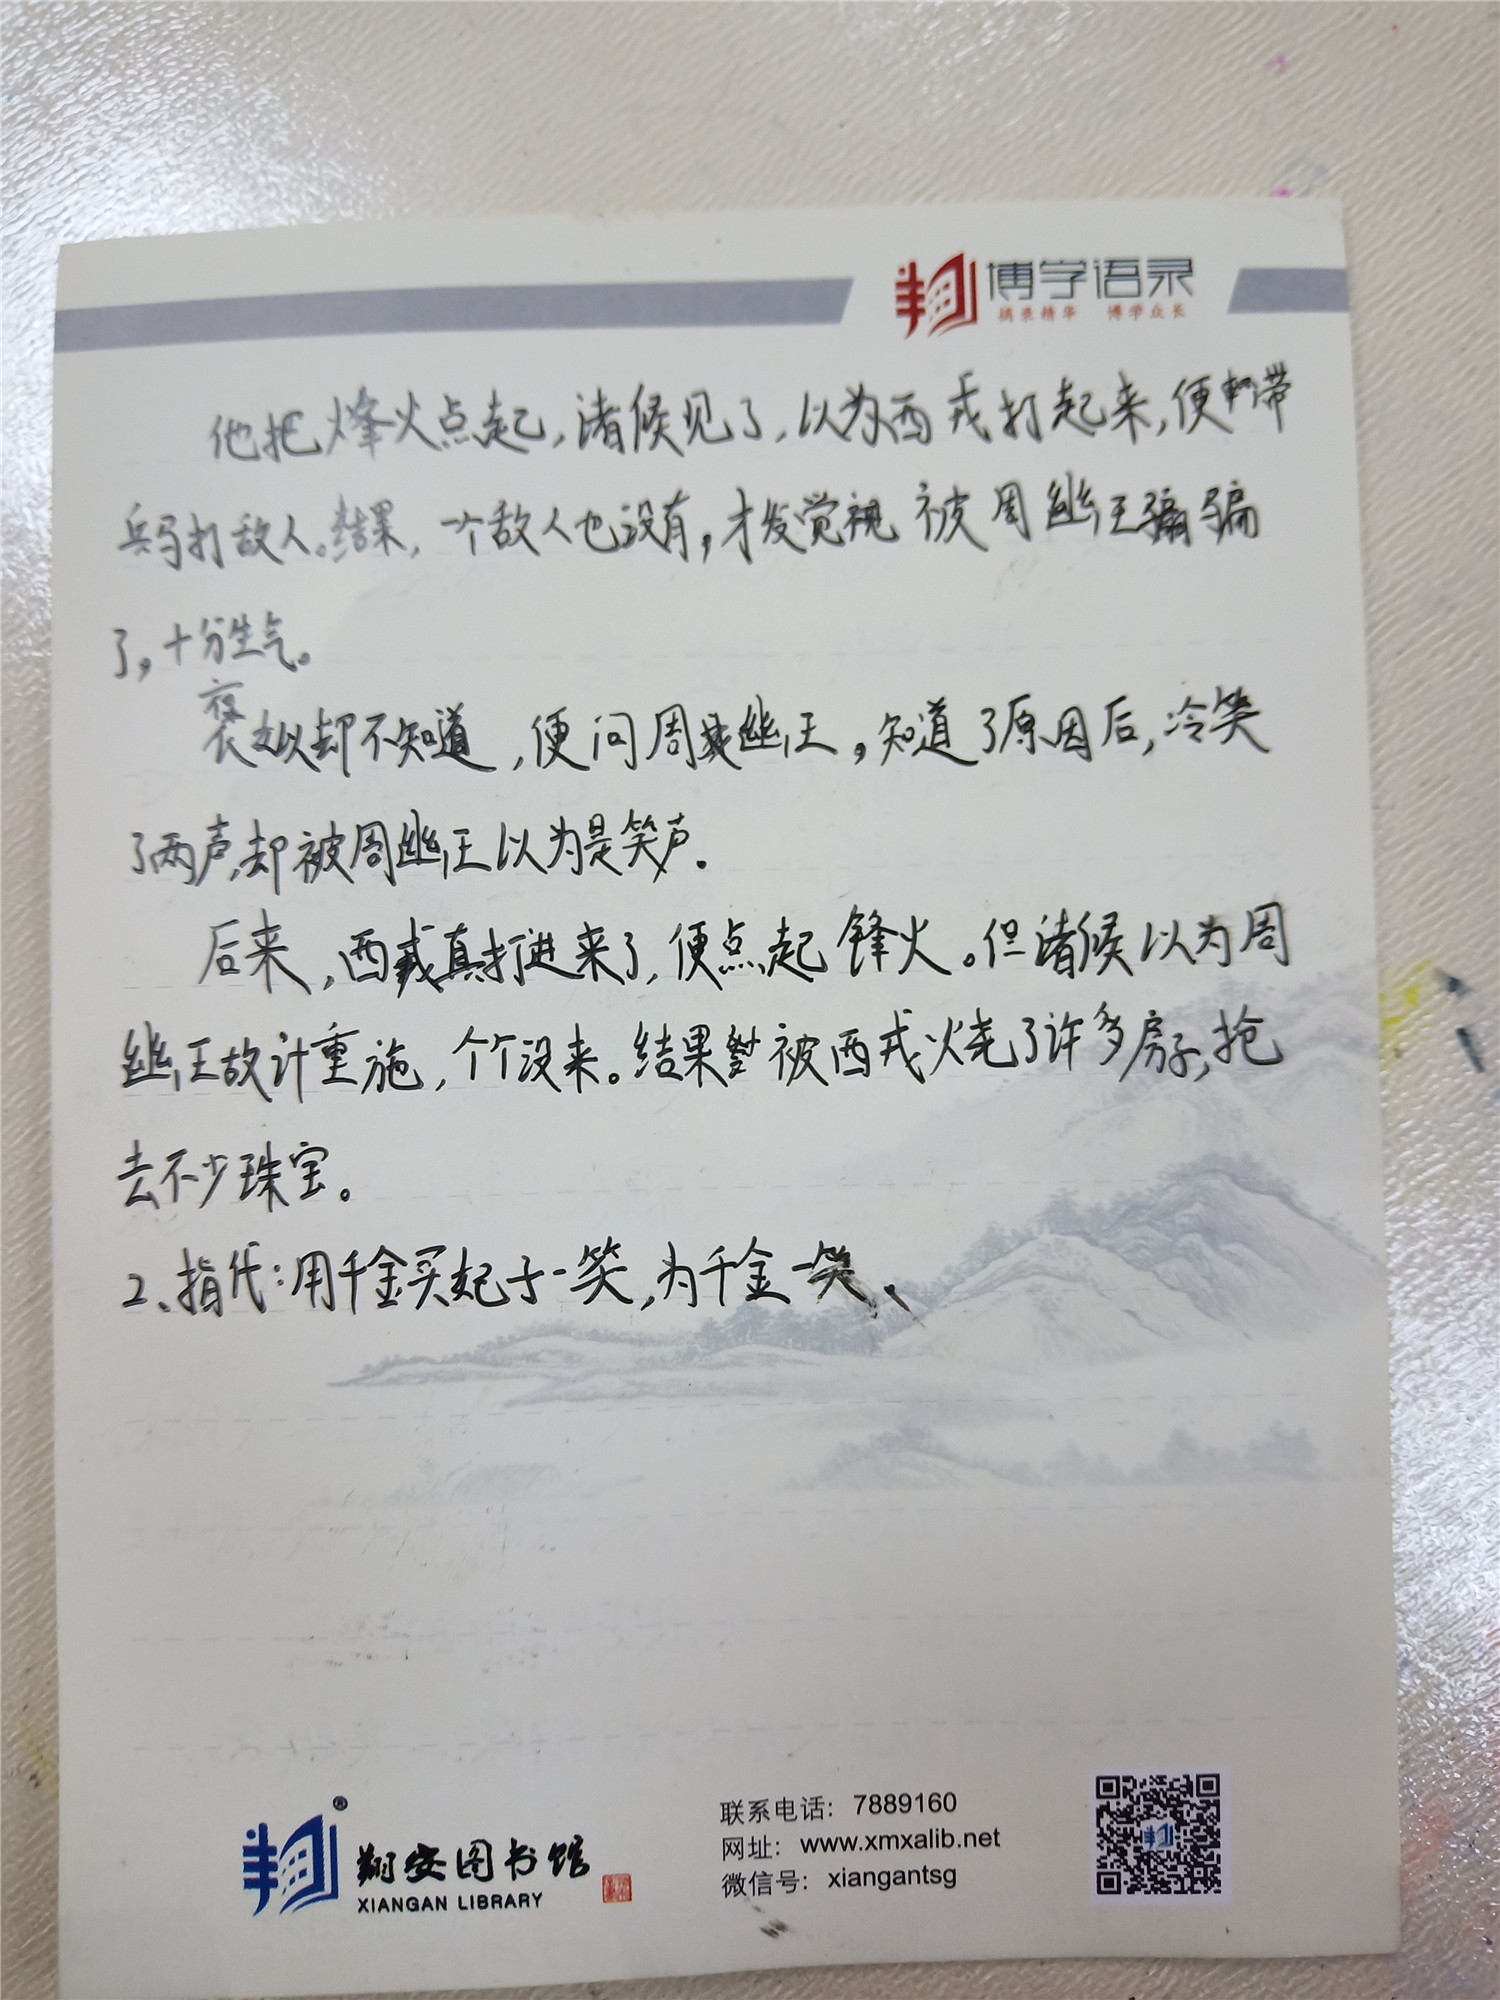 博学语录
摘录精华 博学众长
他把烽火点起,渚候见了,以为西戎打起来,便带
兵马打敌人。结果,一个敌人也没有,才发觉被周幽王骗
了,十分生气。
褒姒却不知道,便问周幽王,知道了原因后,冷笑
了两声,却被周幽王以为是笑声.
后来,西戎真打进来了,便点起锋火。但渚候以为周
幽王故计重施,个个没来。结果被西戎火烧了许多房子,抢
去不少珠宝。
2、指代:用千金买妃子一笑,为千金一笑、
翔安图书馆
XIANGAN LIBRARY
联系电话:7889160
网址:www.xmxalib.net
微信号:xiangantsg